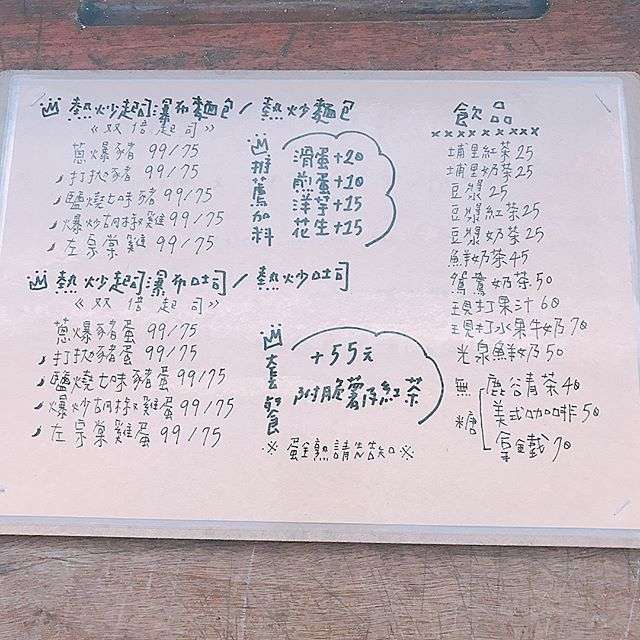 熱炒起司瀑布麵包/熱炒麵包
《双倍起司》
蔥爆豬 99/75
打拋豬 99/75
鹽燒七味豬 99/75
爆炒胡椒雞 99/75
左宗棠雞 99/75
推薦加料
滑蛋+20
煎蛋+10
洋芋+15
花生+15
熱炒起司瀑布吐司/熱炒吐司
《双倍起司》
蔥爆豬蛋 99/75
打拋豬蛋 99/75
鹽燒七味豬蛋 99/75
爆炒胡椒雞蛋 99/75
左宗棠雞蛋 99/75
套餐
+55元
附脆薯仔紅茶
※蛋熟請告知※
飲品
xxxxxxxxx
埔里紅茶25
埔里奶茶25
豆漿25
豆漿紅茶25
豆漿奶茶25
鮮奶茶45
鴛鴦奶茶50
現打果汁60
現打水果牛奶70
光泉鮮奶50
無糖
鹿谷青茶40
美式咖啡50
拿鐵70